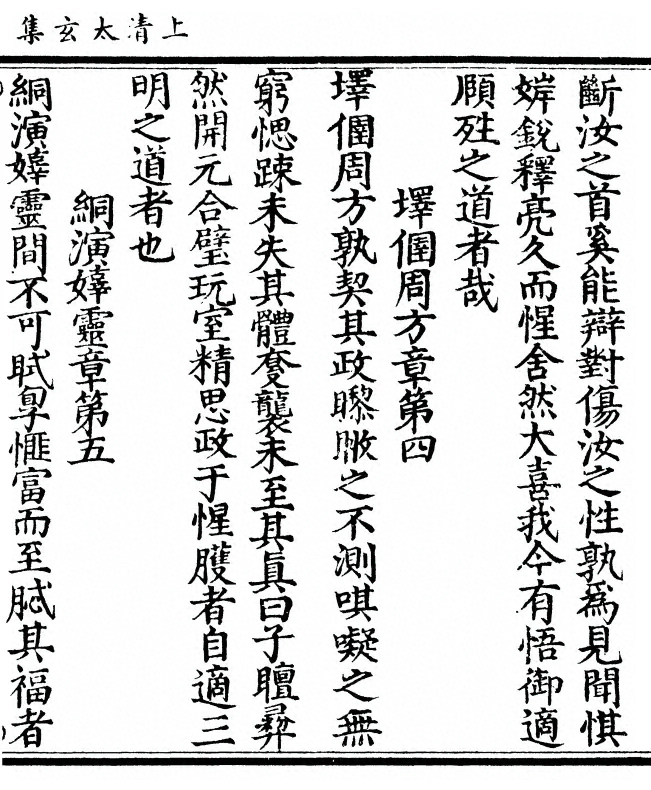 上清太玄集
斷汝之首奚能辯對傷汝之性孰為見聞惧
婩銳釋亮久而惺舍然大喜我今有悟御適
頋殅之道者哉
墿㑌周方章第四
墿㑌周方孰契其政瞟之不測唭礙之無
窮愢踈未失其體奓襲未至其真曰子䁴彞
然開元合璧玩室精思政于惺臒者自適三
明之道者也
絅演嫴靈章第五
絅演嫴靈間不可㢤㝵悱富而至其福者